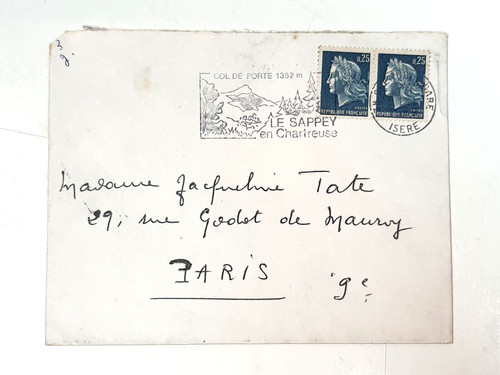 3
COL DE PORTE 1352 m
LE SAPPEY
en Chartreuse
0,25
REPUBLIQUE FRANÇAISE
0,25
REPUBLIQUE FRANÇAISE
ISERE
Madame Jacqueline Tate
29, rue Godot de Mauroy
PARIS 9e